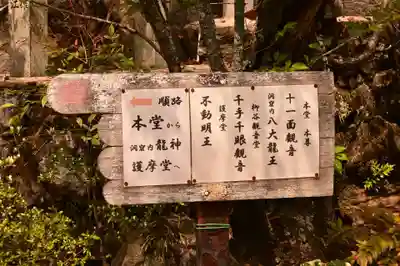 本堂 本尊
十一面観音
洞窟内 八大龍王
柳谷観音堂
千手千眼観音
護摩堂
不動明王
← 順路
本堂から
洞窟内龍神
護摩堂へ